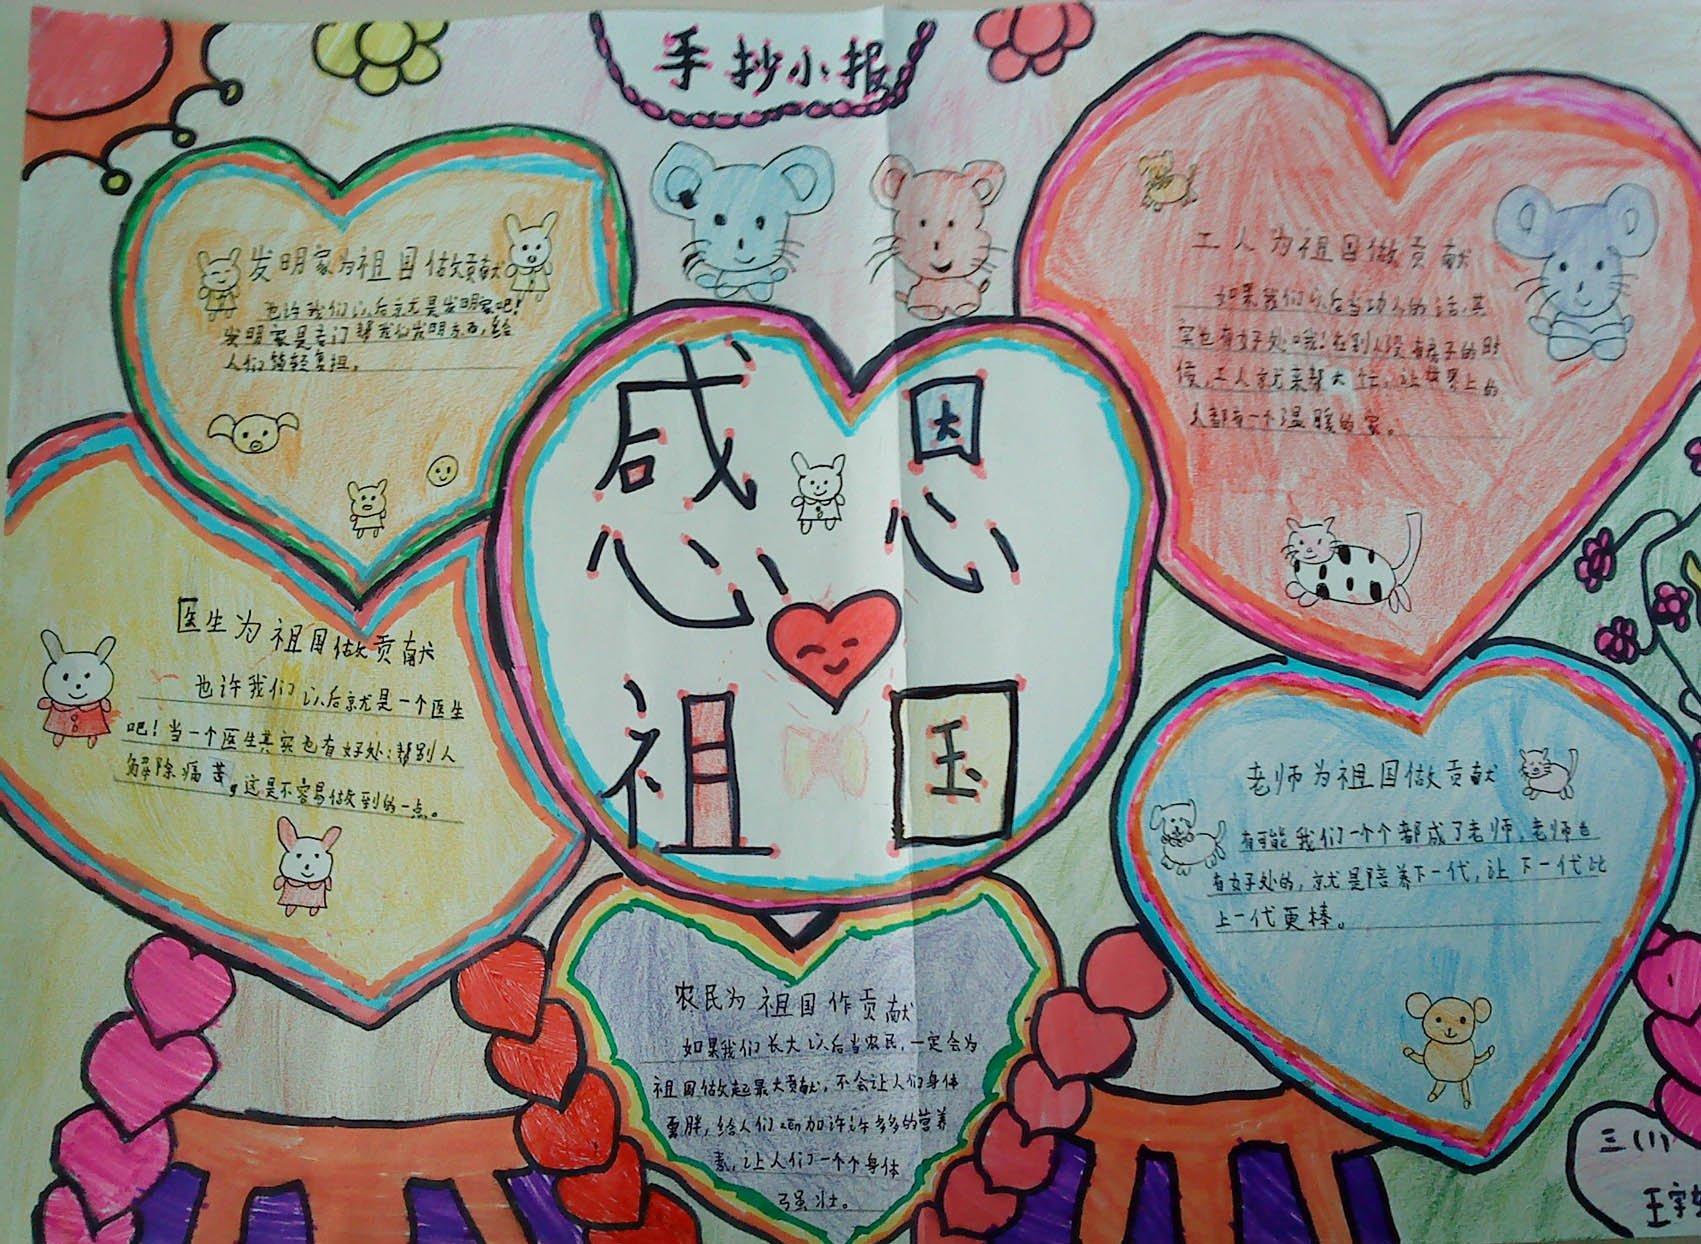 手抄小报
感恩
祖国
发明家为祖国做贡献
也许我们以后就是发明家吧!
发明家是专门帮我们发明东西,给
人们减轻负担。
工人为祖国做贡献
如果我们以后当功人的话,其
实也有好处哦!在别人没有房子的时
候,工人就来帮大忙,让世界上的
人都有一个温暖的家。
医生为祖国做贡献
也许我们以后就是一个医生
吧!当一个医生其实也有好处:帮别人
解除痛苦,这是不容易做到的一点。
老师为祖国做贡献
有可能我们一个个都成了老师,老师也
有好处的,就是陪养下一代,让下一代比
上一代更棒。
农民为祖国作贡献
如果我们长大以后当农民,一定会为
祖国做起最大贡献,不会让人们身体
胖,给人们zen加许许多多的营养
素,让人们一个个身体
强壮。
三(1)
王宇